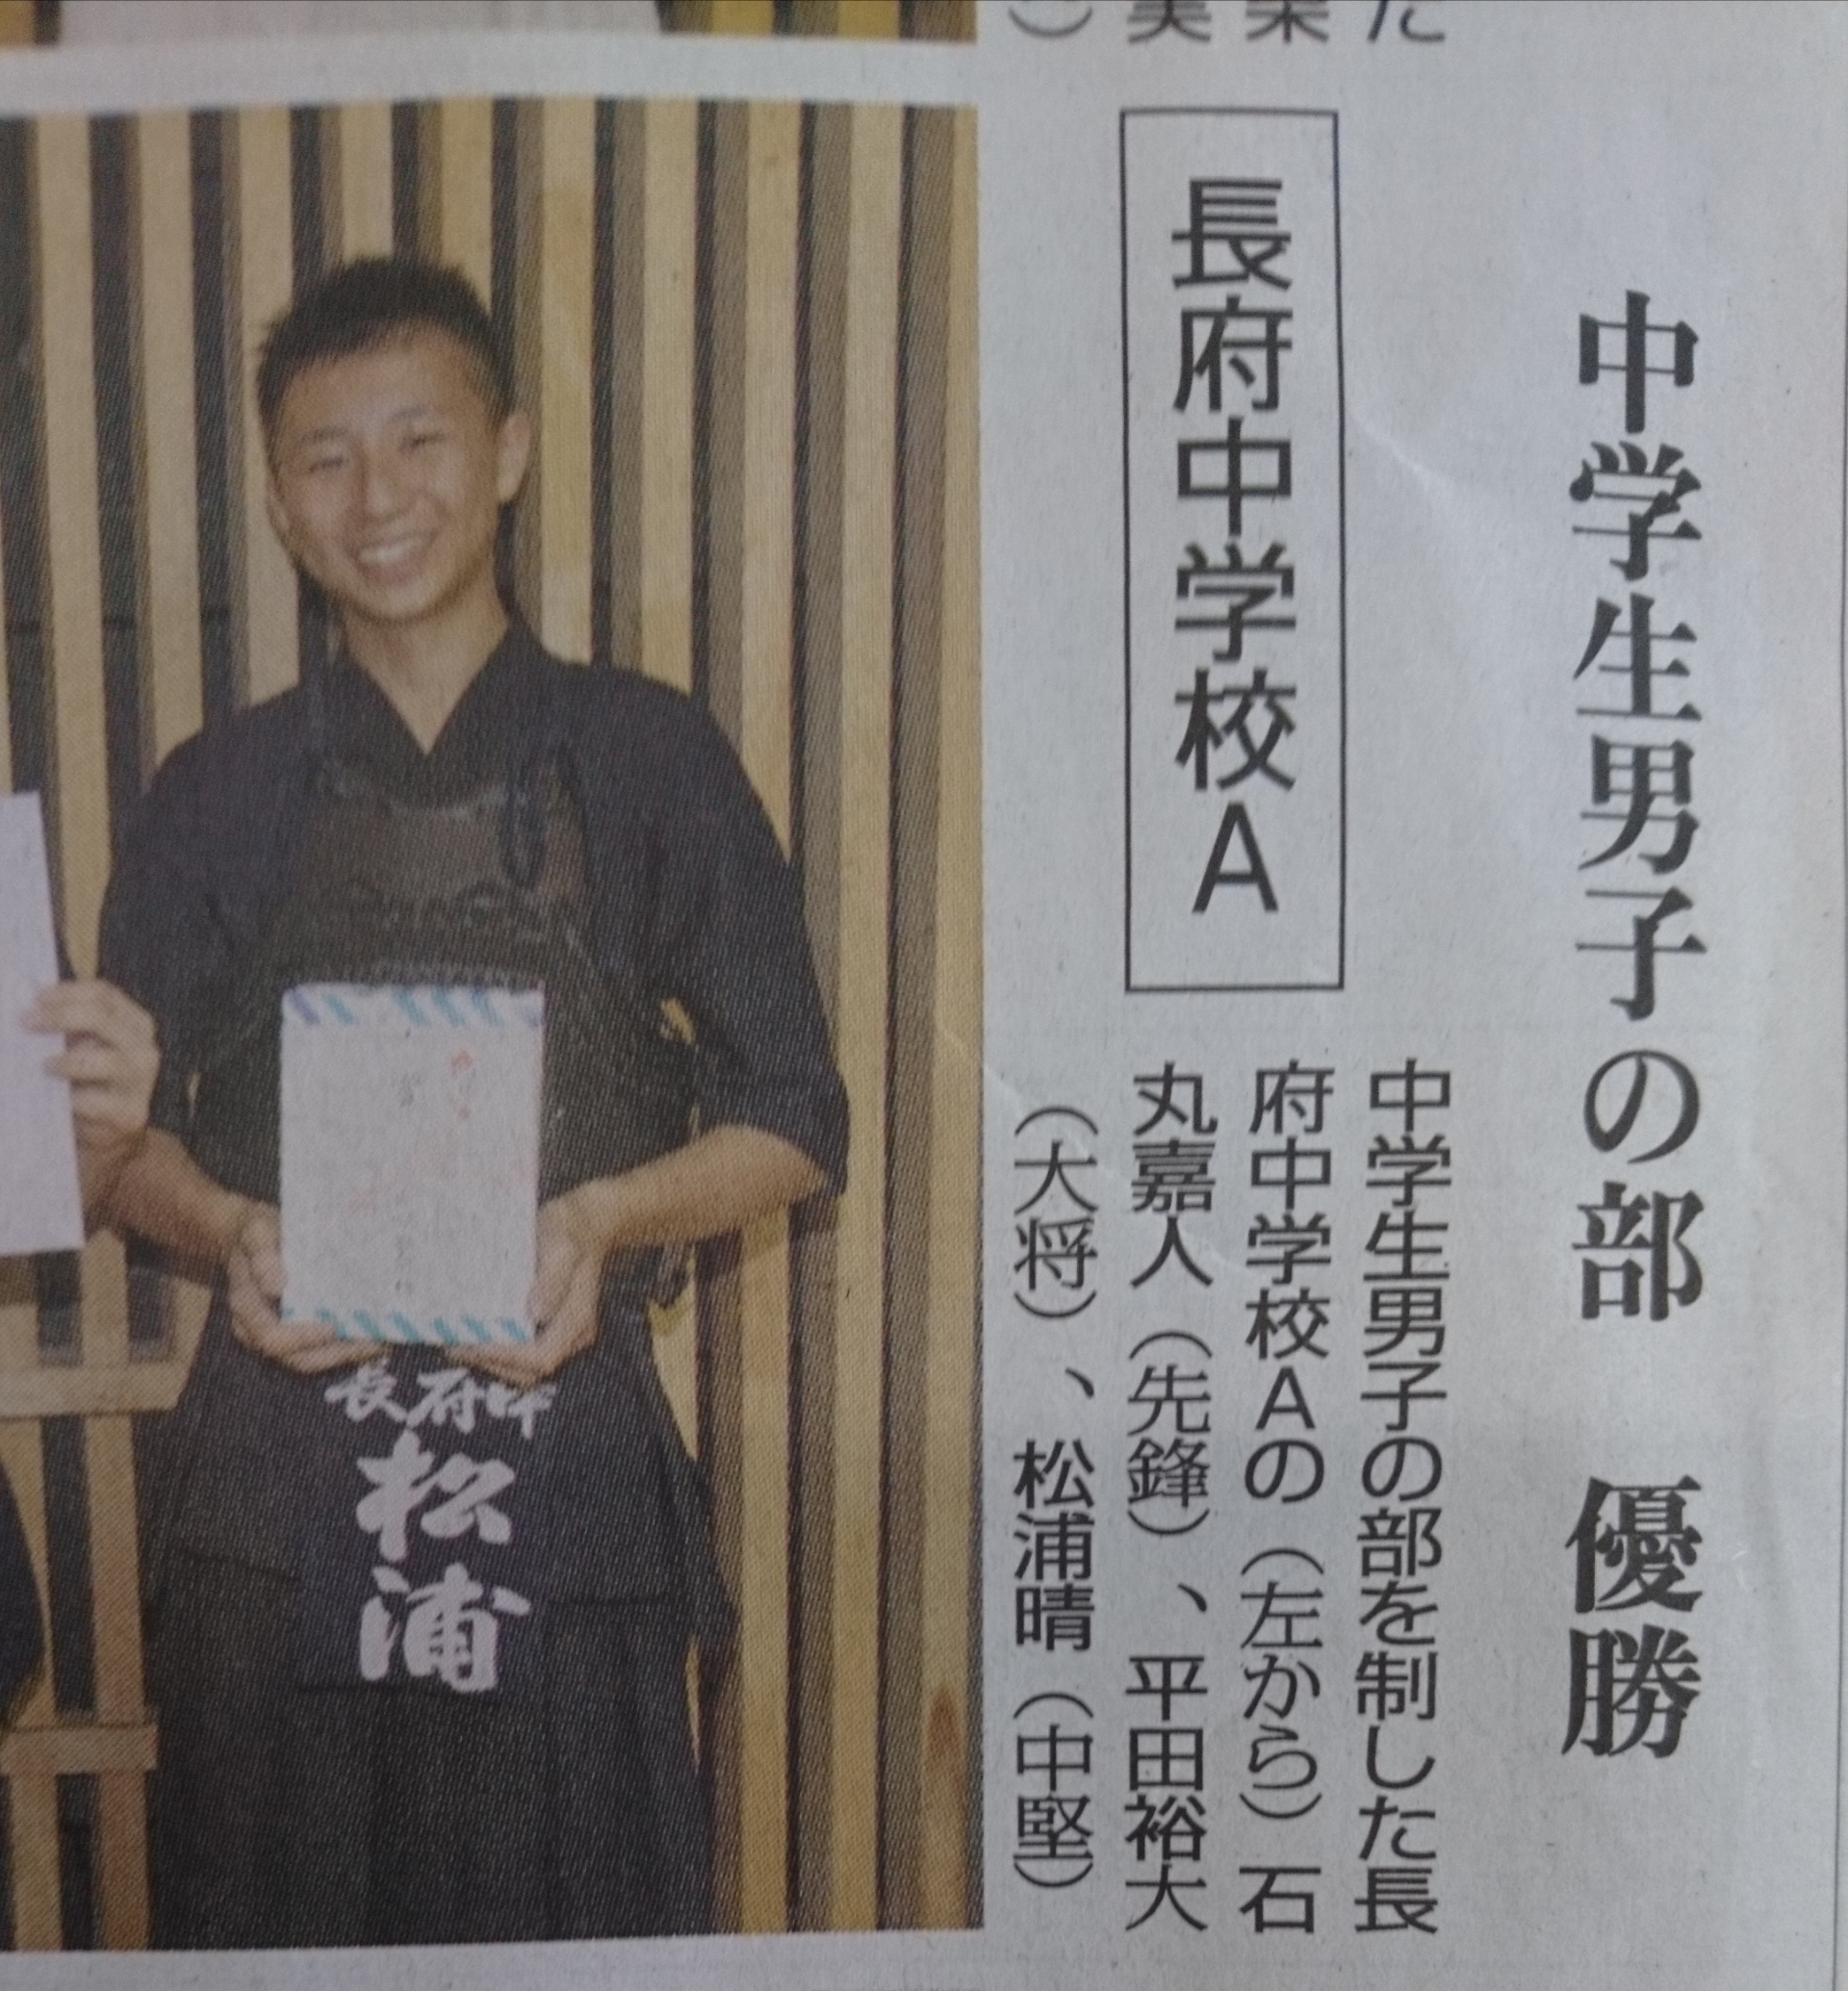 中学生男子の部　優勝
長府中学校A
中学生男子の部を制した長
府中学校Aの（左から）石
丸嘉人（先鋒）、平田裕大
（大将）、松浦晴（中堅）
長府中
松浦